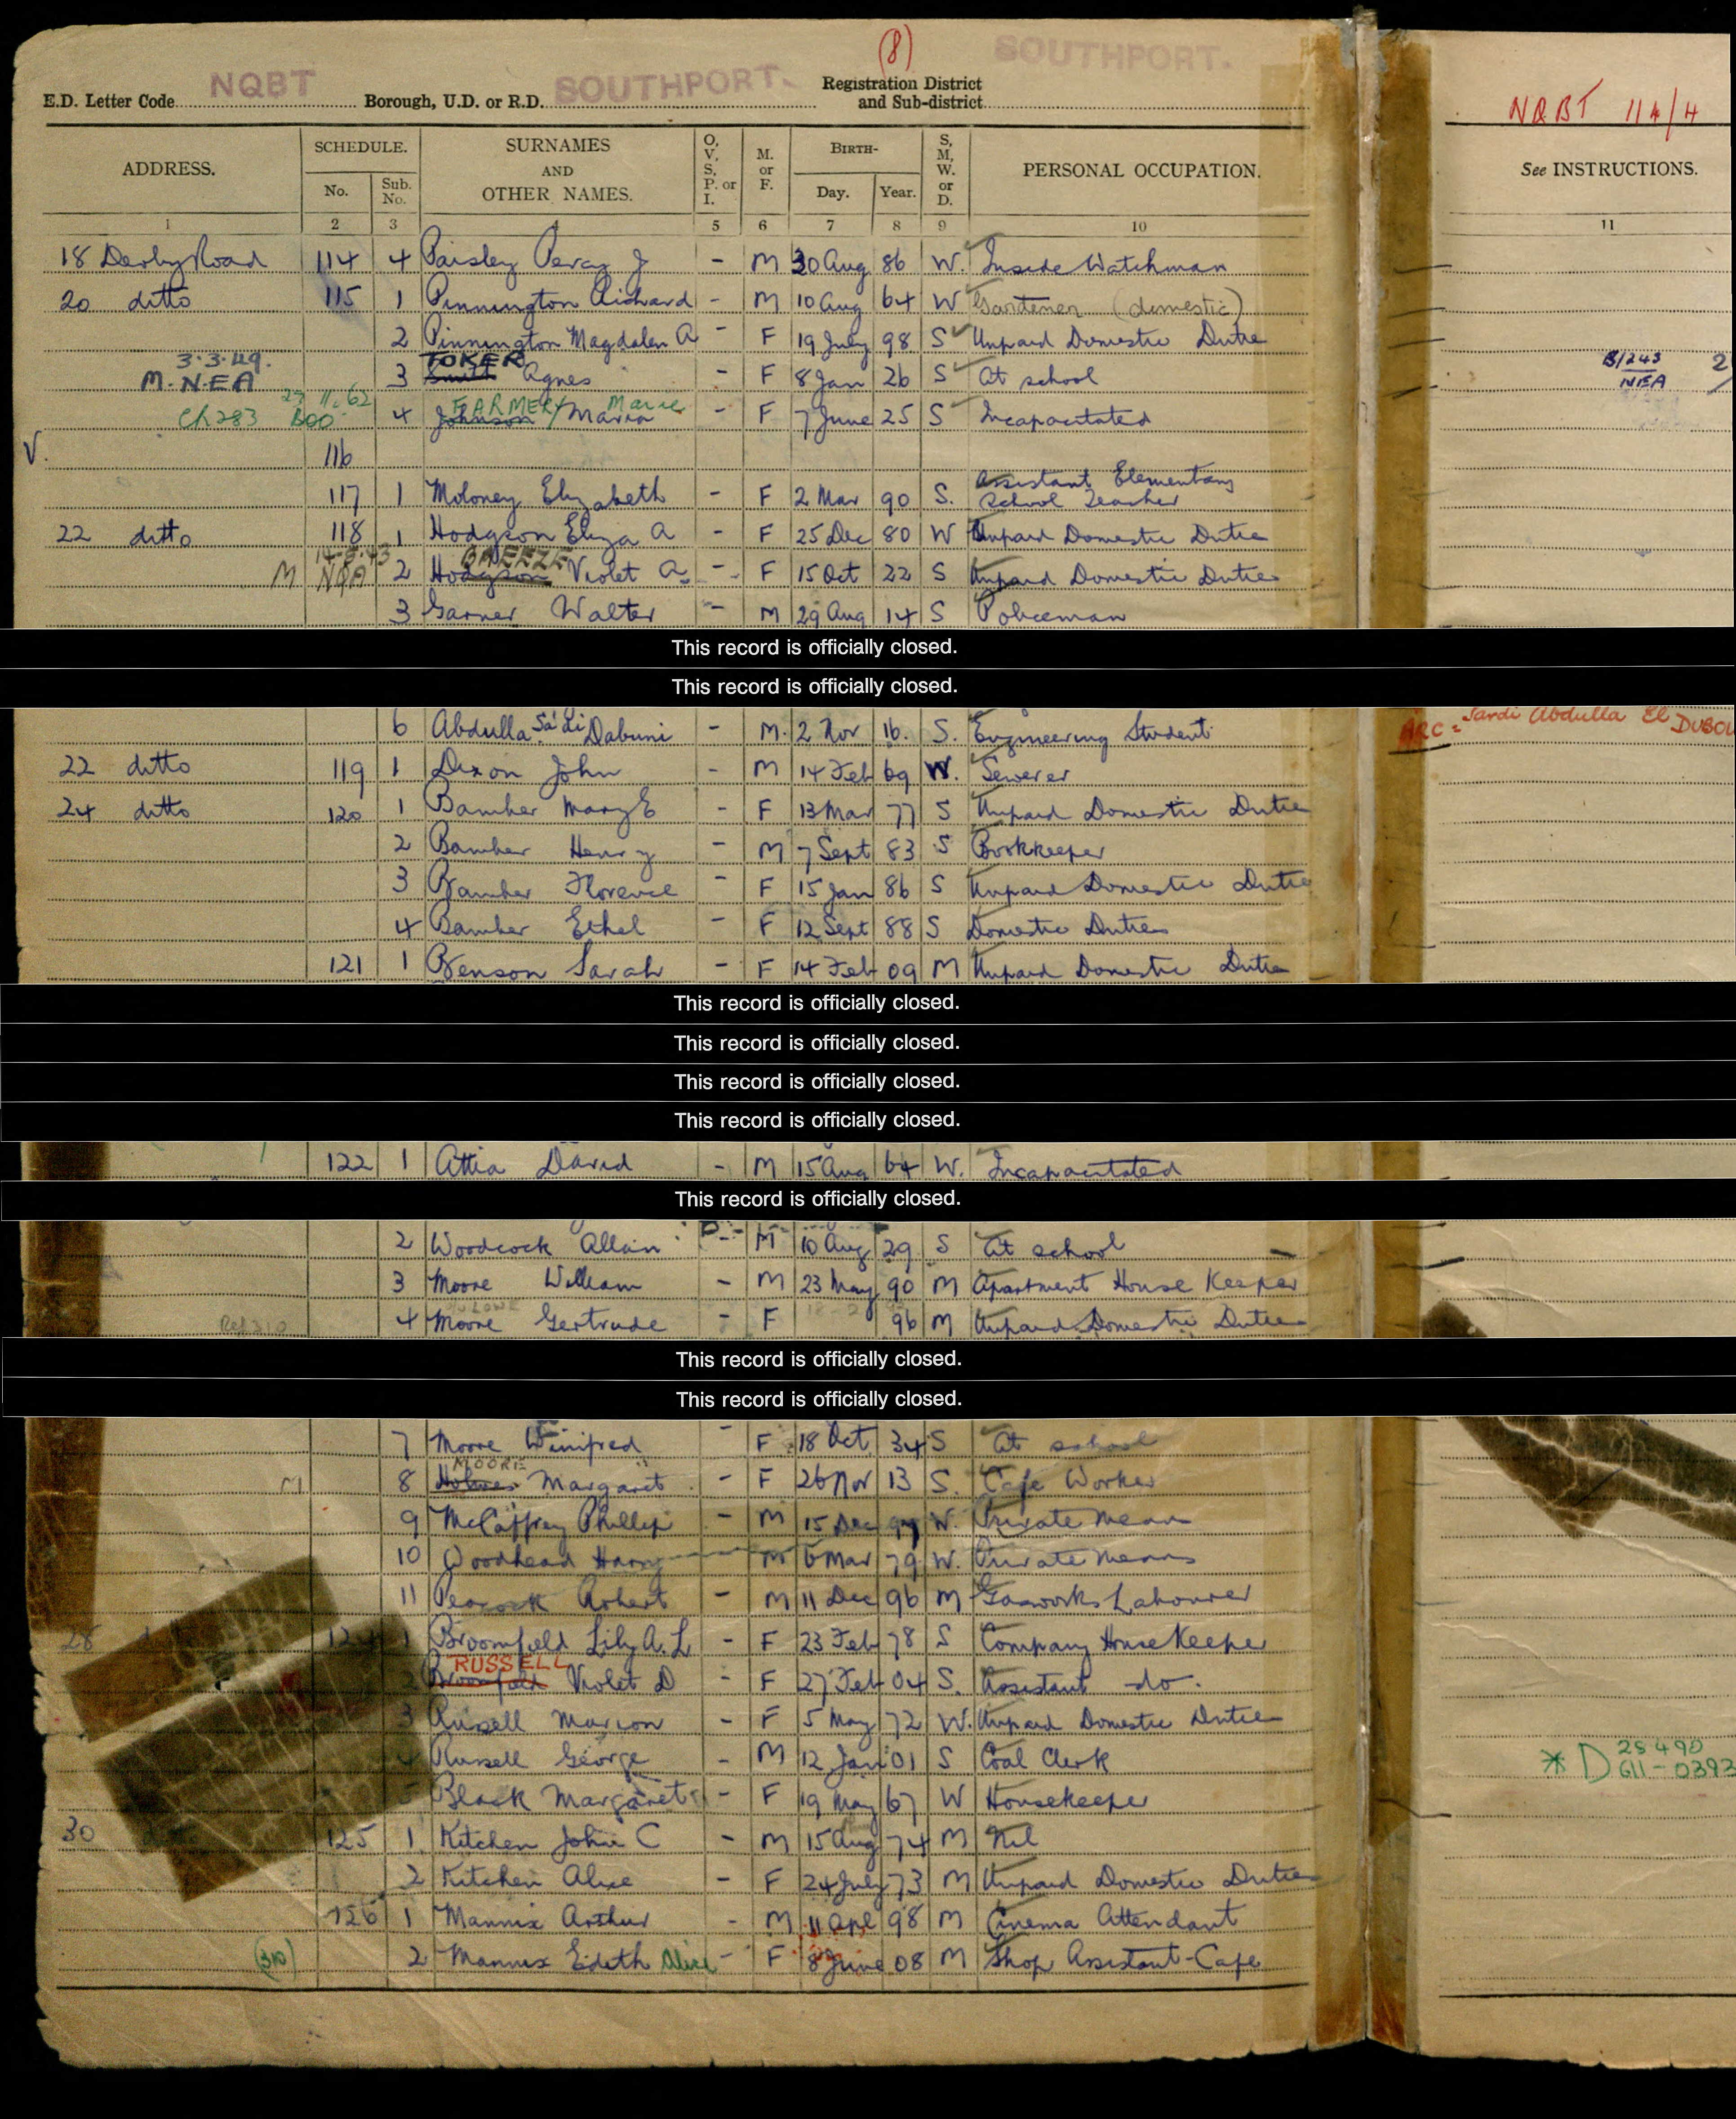 (8)
NQBT SOUTHPORT. SOUTHPORT.
E.D. Letter Code Borough, U.D. or R.D. Registration District and Sub-district
NQBT 114/4
ADDRESS. SCHEDULE. No. Sub. No. SURNAMES AND OTHER NAMES. O, V, S, P. or I. M. or F. BIRTH- Day. Year. S, M, W. or D. PERSONAL OCCUPATION. See INSTRUCTIONS.
1 2 3 4 5 6 7 8 9 10 11
18 Derby Road 114 4 Paisley Percy J - M 30 Aug 86 W. Inside Watchman
20 ditto 115 1 Pinnington Richard - M 10 Aug 64 W Gardener (domestic)
2 Pinnington Magdalen A - F 19 July 98 S Unpaid Domestic Duties
3.3.49. TOKER B/243 2
M. NEA 3 Smith Agnes - F 8 Jan 26 S At school NEA
27 11.62 FARMER Marie
Ch283 BOO 4 Johnson / Maria F 7 June 25 S Incapacitated
V. 116
117 1 Moloney Elizabeth - F 2 Mar 90 S. Assistant Elementary School Teacher
22 ditto 118 1 Hodgson Eliza A - F 25 Dec 80 W Unpaid Domestic Duties
BREEZE
M NQA 2 Hodgson Violet A. - F 15 Oct 22 S Unpaid Domestic Duties
3 Garner Walter - M 29 Aug 14 S Policeman
This record is officially closed.
This record is officially closed.
6 Abdulla Sa'di Dabuni - M. 2 Nov 16. S. Engineering Student ARC = Sardi Abdulla El DUBOU
22 ditto 119 1 Dixon John - M 14 Feb 69 W. Sewerer
24 ditto 120 1 Bamber Mary E - F 13 Mar 77 S Unpaid Domestic Duties
2 Bamber Henry - M 7 Sept 83 S Bookkeeper
3 Bamber Florence - F 15 Jan 86 S Unpaid Domestic Duties
4 Bamber Ethel - F 12 Sept 88 S Domestic Duties
121 1 Benson Sarah - F 14 Feb 09 M Unpaid Domestic Duties
This record is officially closed.
This record is officially closed.
This record is officially closed.
This record is officially closed.
122 1 Attia David - M 15 Aug 64 W. Incapacitated
This record is officially closed.
2 Woodcock Allan - M 10 Aug 29 S At school
3 Moore William - M 23 May 90 M Apartment House Keeper
Ref 310 4 Moore Gertrude - F 96 M Unpaid Domestic Duties
This record is officially closed.
This record is officially closed.
7 Moore Winifred - F 18 Oct 34 S At school
MOORE
M 8 Holmes Margaret - F 26 Nov 13 S. Cafe Worker
9 McCaffrey Phillip - M 15 Dec W. Private Means
10 Woodhead Harry M 6 Mar 79 W. Private Means
11 Peacock Robert - M 11 Dec 96 M Gasworks Labourer
28 124 1 Broomfield Lily A. L - F 23 Feb 78 S Company House Keeper
RUSSELL
2 Broomfield Violet D - F 27 Feb 04 S. Assistant -do-.
3 Russell Marion - F 5 May 72 W. Unpaid Domestic Duties
4 Russell George - M 12 Jan 01 S Coal Clerk * D 25490 611-0393
Black Margaret - F 19 May 67 W Housekeeper
30 125 1 Kitchen John C - M 15 Aug 74 M Nil
2 Kitchen Alice - F 24 July 73 M Unpaid Domestic Duties
126 1 Mannix Arthur - M 11 Apl 98 M Cinema Attendant
(310) 2 Mannix Edith Alice - F 8 June 08 M Shop Assistant-Cafe